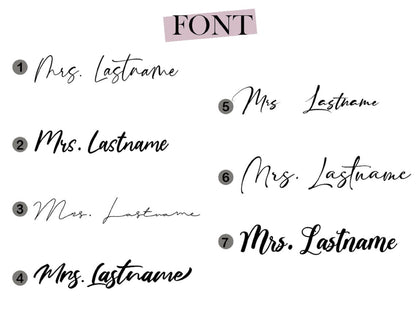 FONT
1 Mrs. Lastname
2 Mrs. Lastname
3 Mrs. Lastname
4 Mrs. Lastname
5 Mrs Lastname
6 Mrs. Lastname
7 Mrs. Lastname